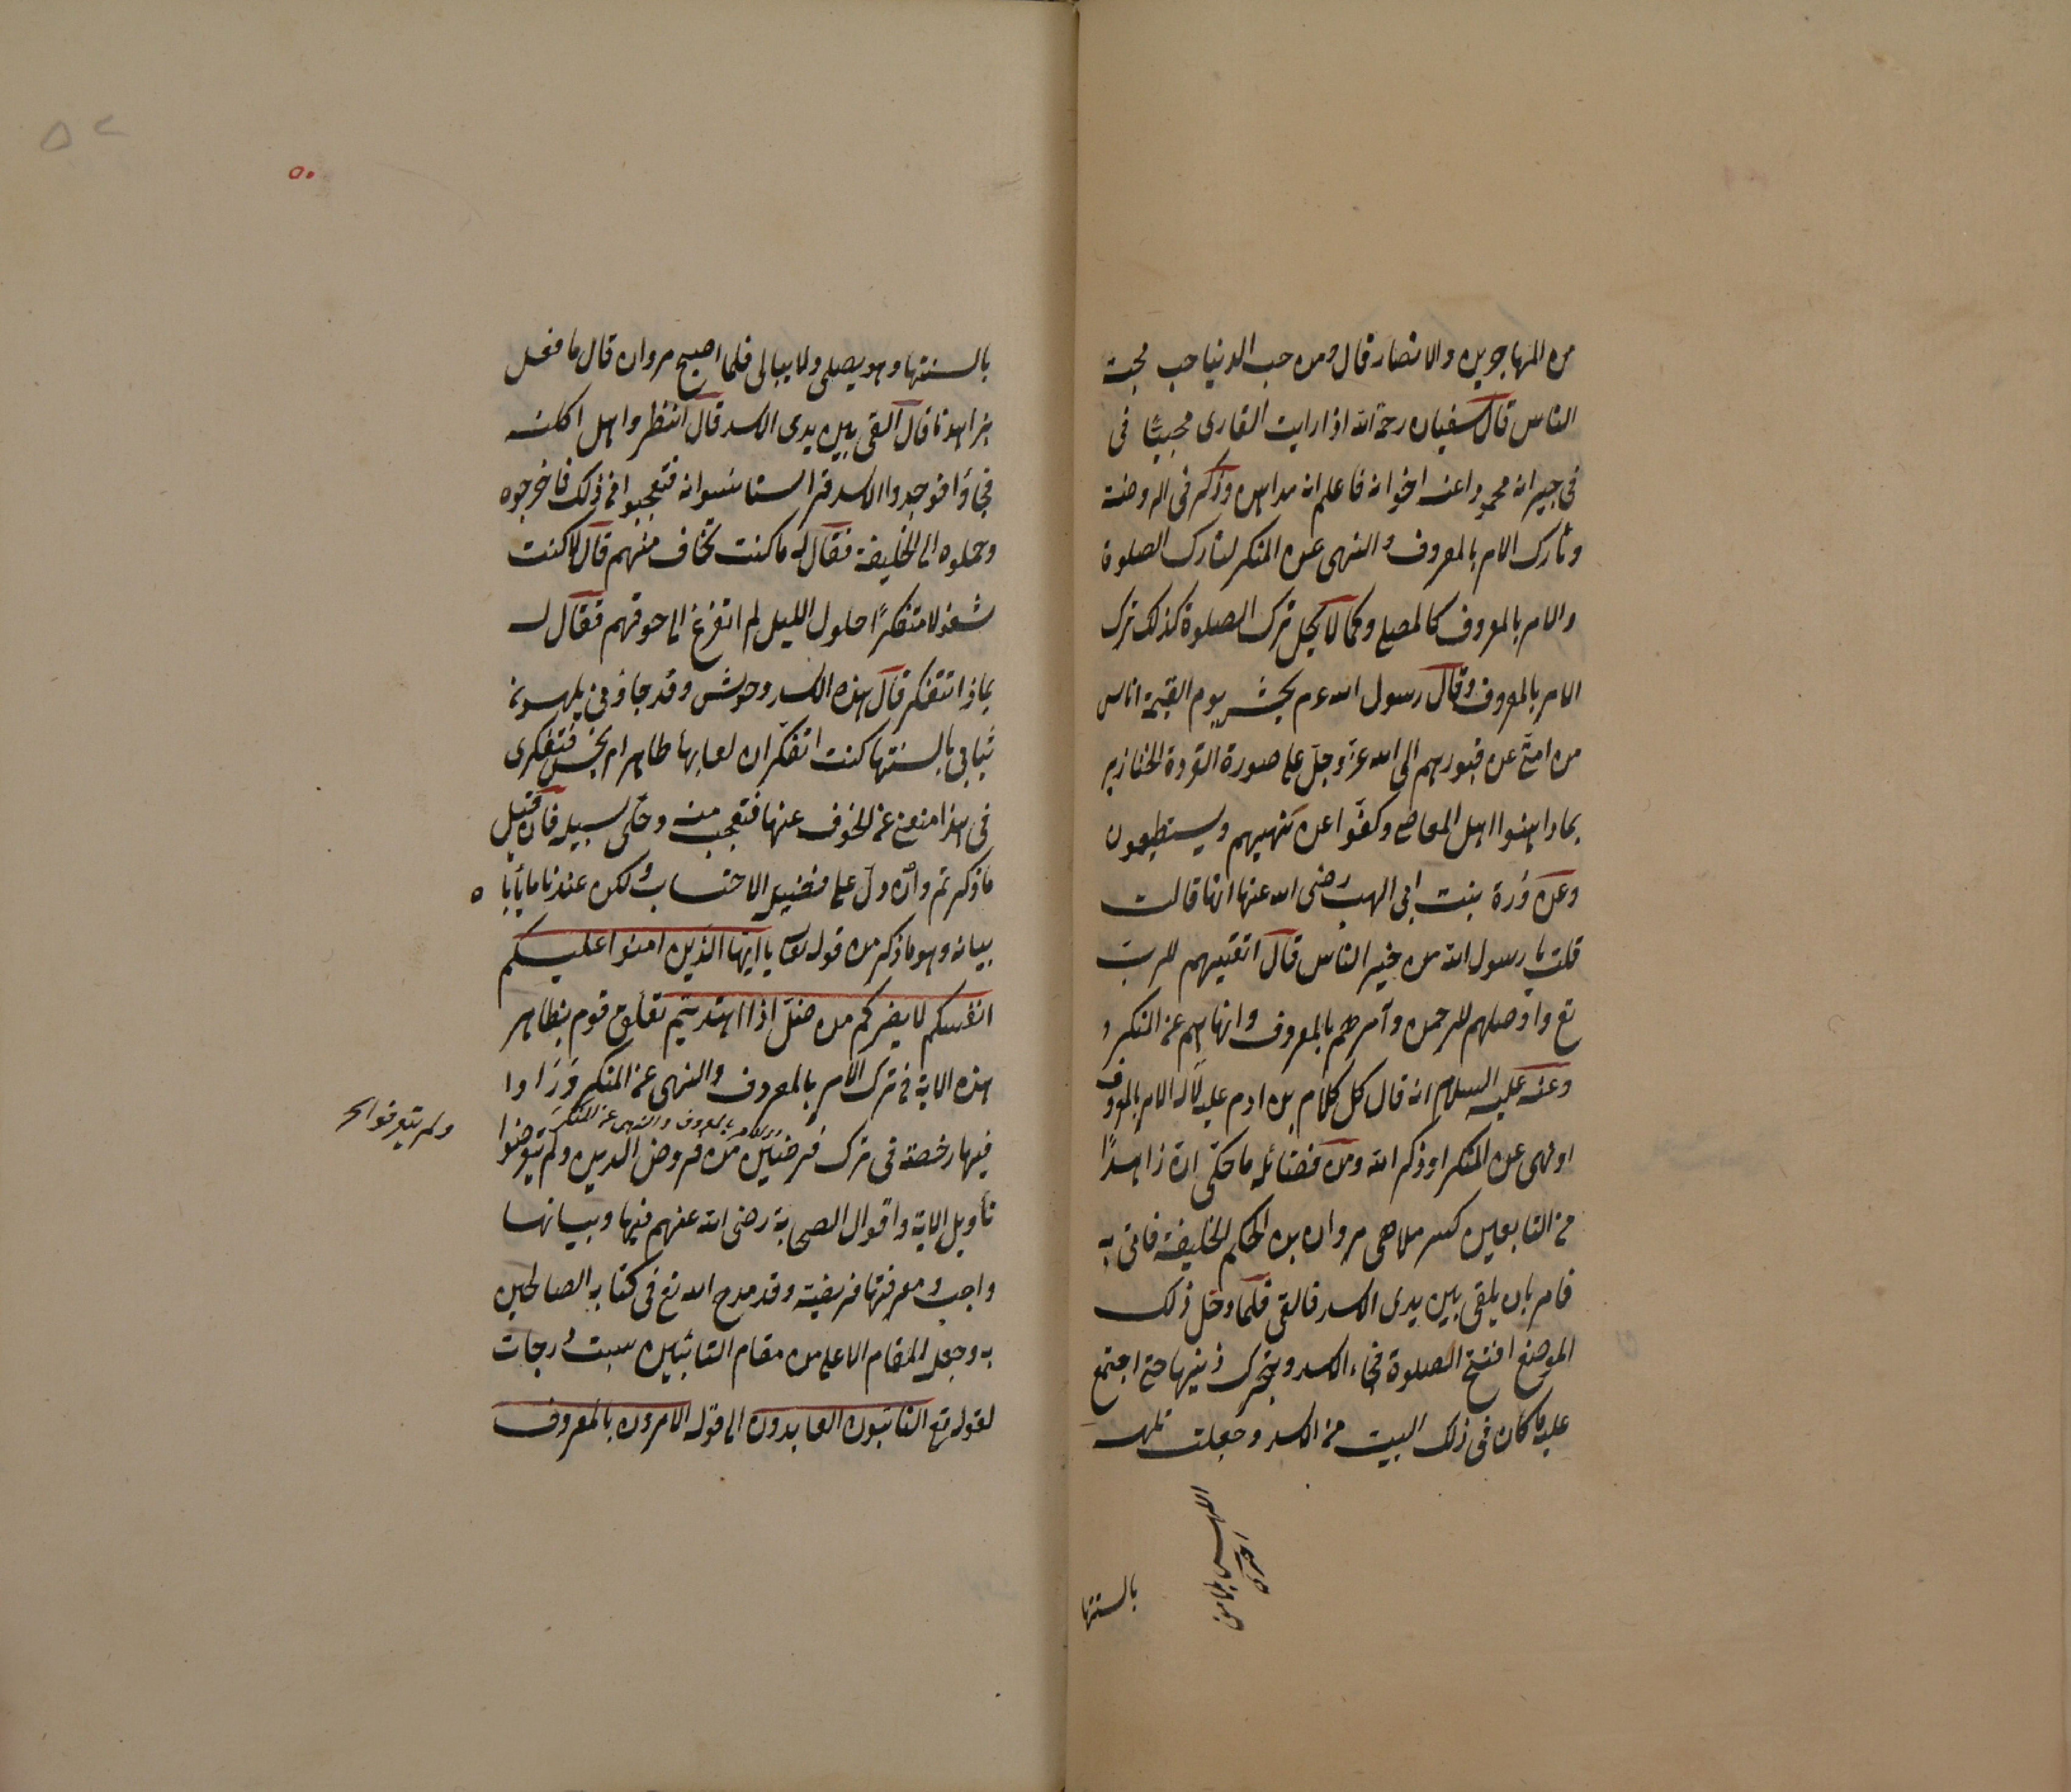 من المهاجرين والانصار قال ومن حب الدنيا حب محبة
الناس قال سفيان رحمة الله اذا رايت القارى محببًا فى
فى جيرانه محمودا عند اخوانه فاعلم انه مداهن وذكر فى الروضة
وتارك الامر بالمعروف والنهى عن المنكر كتارك الصلوة
والامر بالمعروف كالمصلى وكما لا يحل ترك الصلوة كذلك ترك
الامر بالمعروف وقال رسول الله عم يحشر يوم القيمة اناس
من امتى عن قبورهم الى الله عزّ وجلّ على صورة القردة الخنازير
بما داهنوا اهل المعاصى وكفّوا عن نهيهم ويستطيعون
وعن دُرة بنت ابى الهب رضى الله عنها انها قالت
قلت يا رسول الله من خير الناس قال اتقيهم للرب
تع واوصلهم للرحم وآمرهم بالمعروف وانهاهم عن المنكر و
وعنه عليه السلام انه قال كل كلام بن ادم عليه لا له الا امر بالمعروف
او نهى عن المنكر او ذكر الله ومن فضائله ما حكى ان زاهدًا
من التابعين كسر ملاهى مروان بن الحكم الخليفة فاتى به
فامر بان يلقى بين يدى الاسد فالقى فلما دخل ذلك
الموضع افتتح الصلوة فجاء الاسد ويحرك ذنبها حتى اجتمع
عليه ما كان فى ذلك البيت من الاسد وجعلت تلحسه
بالسنتها
بالسنتها وهو يصلى ولا يبالى فلما اصبح مروان قال ما فعل
بزاهدنا قال القى بين يدى الاسد قال انظروا هل اكلته
فجاؤا فوجدوا الاسد قد استانسوا به فتعجبوا من ذلك فاخرجوه
وحملوه الى الخليفة فقال له ما كنت تخاف منهم قال لا كنت
مشغولا متفكرًا طول الليل لم اتفرغ الى خوفهم فقال له
بماذا تتفكر قال هذه الاسد وحوش وقد جاؤنى يلحسون
ثيابى بالسنتها كنت اتفكر ان لعابها طاهر ام نجس فتفكرى
فى هذا منعنى عن الخوف عنها فتعجب منه وخلّى سبيله فان قيل
ما ذكرتم وان دلّ على فضيلة الاحتساب ولكن عندنا ما يأبا ه
بيانه وهو ما ذكر من قوله تعا يا ايها الذين امنوا عليكم
انفسكم لا يضركم من ضلّ اذا اهتديتم تعلق قوم بظاهر
هذه الاية فى ترك الامر بالمعروف والنهى عن المنكر ورَاوا
فيها رخصة فى ترك فرضين من فروض الدين ولم يتعرضوا
الامر بالمعروف والنهى عن المنكر
تأويل الاية واقوال الصحابة رضى الله عنهم فيها وبيانها
واجب ومعرفتها فريضة وقد مدح الله تع فى كتابه الصالحين
به وجعل المقام الاعلى من مقام التائبين سبت درجات
لقوله تع التائبون العابدون الى قوله الامرون بالمعروف